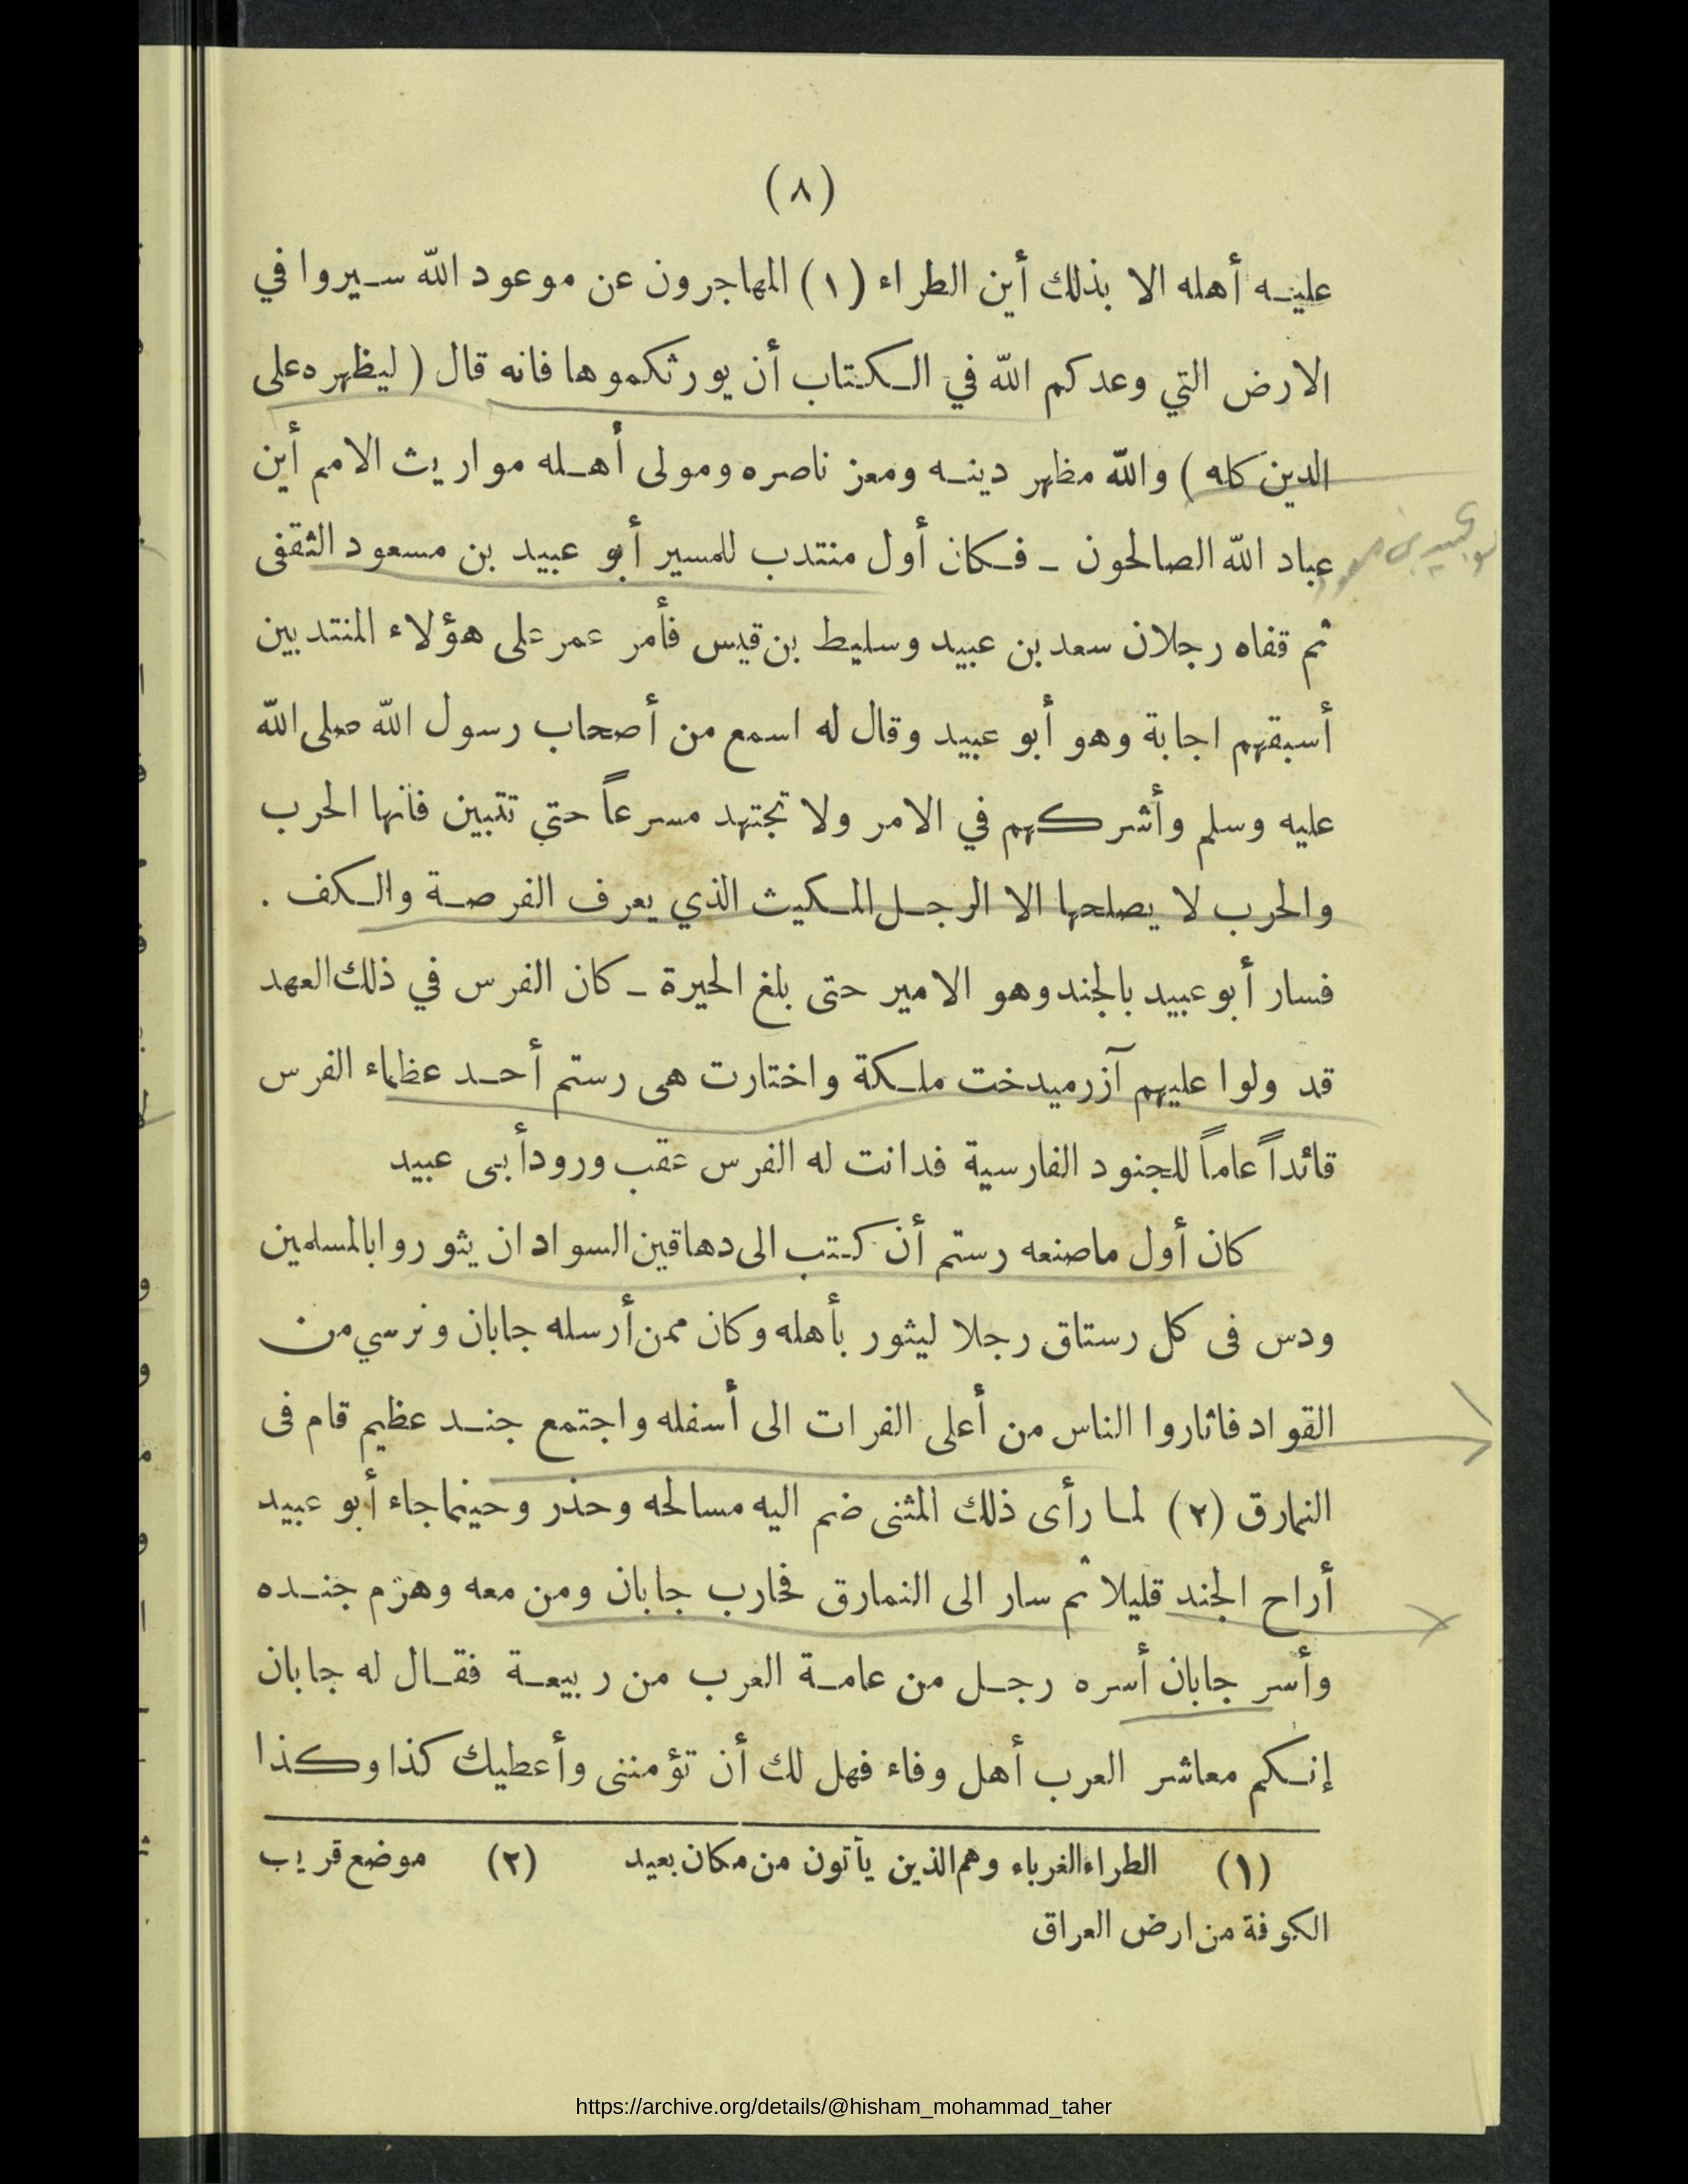 (٨)
عليه أهله الا بذلك أين الطراء (١) المهاجرون عن موعود الله سيروا في
الارض التي وعدكم الله في الكتاب أن يورثكموها فانه قال ( ليظهره على
الدين كله ) والله مظهر دينه ومعز ناصره ومولى أهله مواريث الامم أين
عباد الله الصالحون ـ فكان أول منتدب للمسير أبو عبيد بن مسعود الثقفى
ثم قفاه رجلان سعد بن عبيد وسليط بن قيس فأمر عمر على هؤلاء المنتدبين
أسبقهم اجابة وهو أبو عبيد وقال له اسمع من أصحاب رسول الله صلى الله
عليه وسلم وأشركهم في الامر ولا تجتهد مسرعاً حتي تتبين فانها الحرب
والحرب لا يصلحها الا الرجل المكيث الذي يعرف الفرصة والكف .
فسار أبو عبيد بالجند وهو الامير حتى بلغ الحيرة ـ كان الفرس في ذلك العهد
قد ولوا عليهم آزرميدخت ملكة واختارت هى رستم أحد عظماء الفرس
قائداً عاماً للجنود الفارسية فدانت له الفرس عقب ورود أبى عبيد
كان أول ماصنعه رستم أن كتب الى دهاقين السواد ان يثوروا بالمسلمين
ودس فى كل رستاق رجلا ليثور بأهله وكان ممن أرسله جابان ونرسي من
القواد فاثاروا الناس من أعلى الفرات الى أسفله واجتمع جند عظيم قام فى
النمارق (٢) لما رأى ذلك المثنى ضم اليه مسالحه وحذر وحينما جاء أبو عبيد
أراح الجند قليلا ثم سار الى النمارق فحارب جابان ومن معه وهزم جنده
وأسر جابان أسره رجل من عامة العرب من ربيعة فقال له جابان
إنكم معاشر العرب أهل وفاء فهل لك أن تؤمننى وأعطيك كذا وكذا
(١) الطراء الغرباء وهم الذين يأتون من مكان بعيد (٢) موضع قريب
الكوفة من ارض العراق
https://archive.org/details/@hisham_mohammad_taher